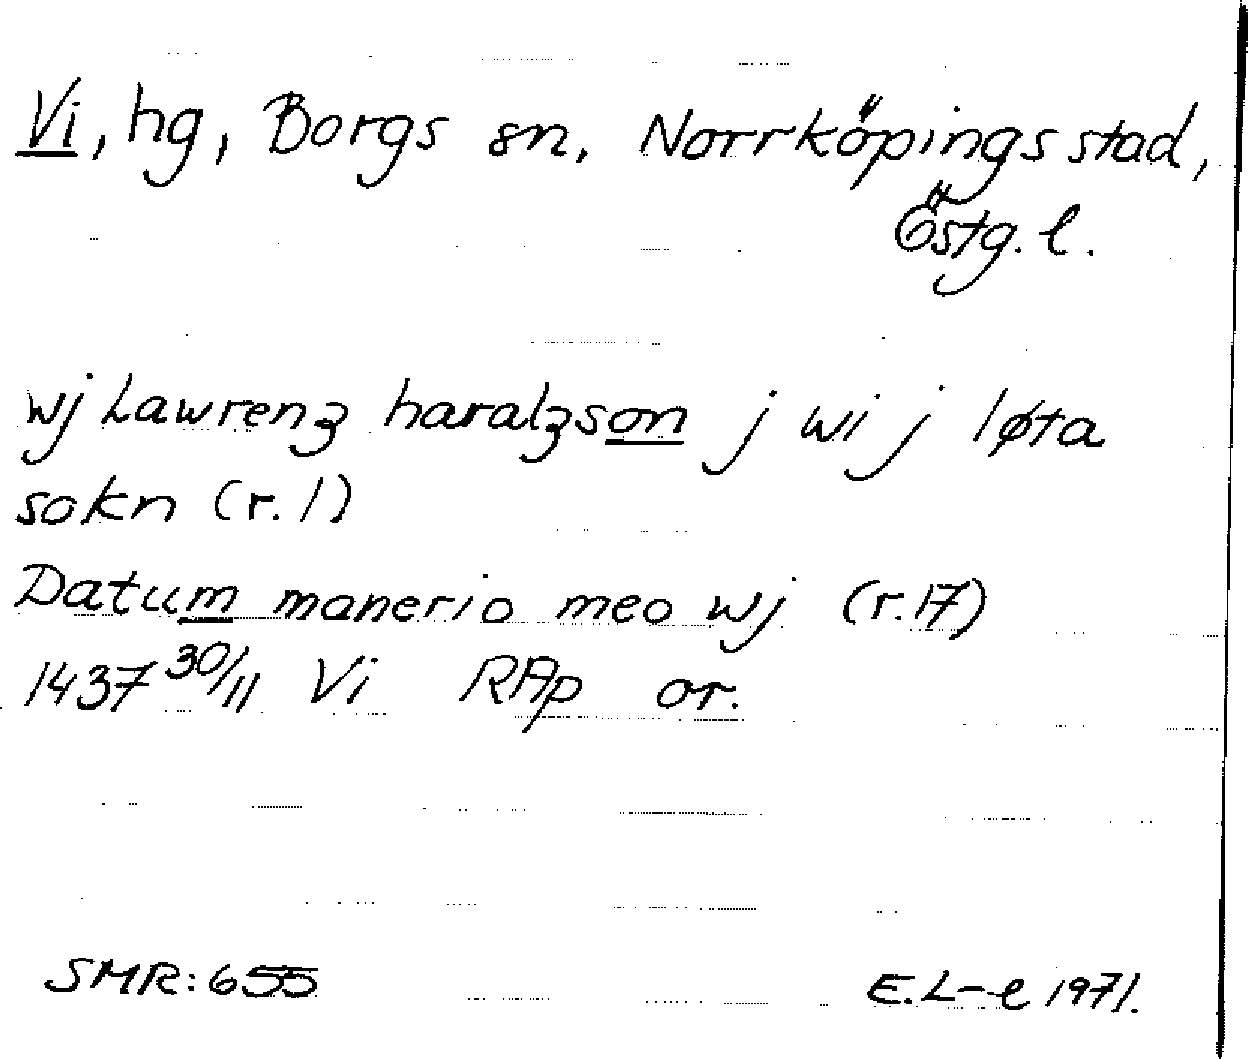 Vi, hg, Borgs sn, Norrköpings stad,
Östg. l.
wj Lawrenz haralzson j wi j løta
sokn (r. 1)
Datum manerio meo wj (r. 17)
1437 30/11 Vi RAp or.
SMR: 655 E. L-e 1971.